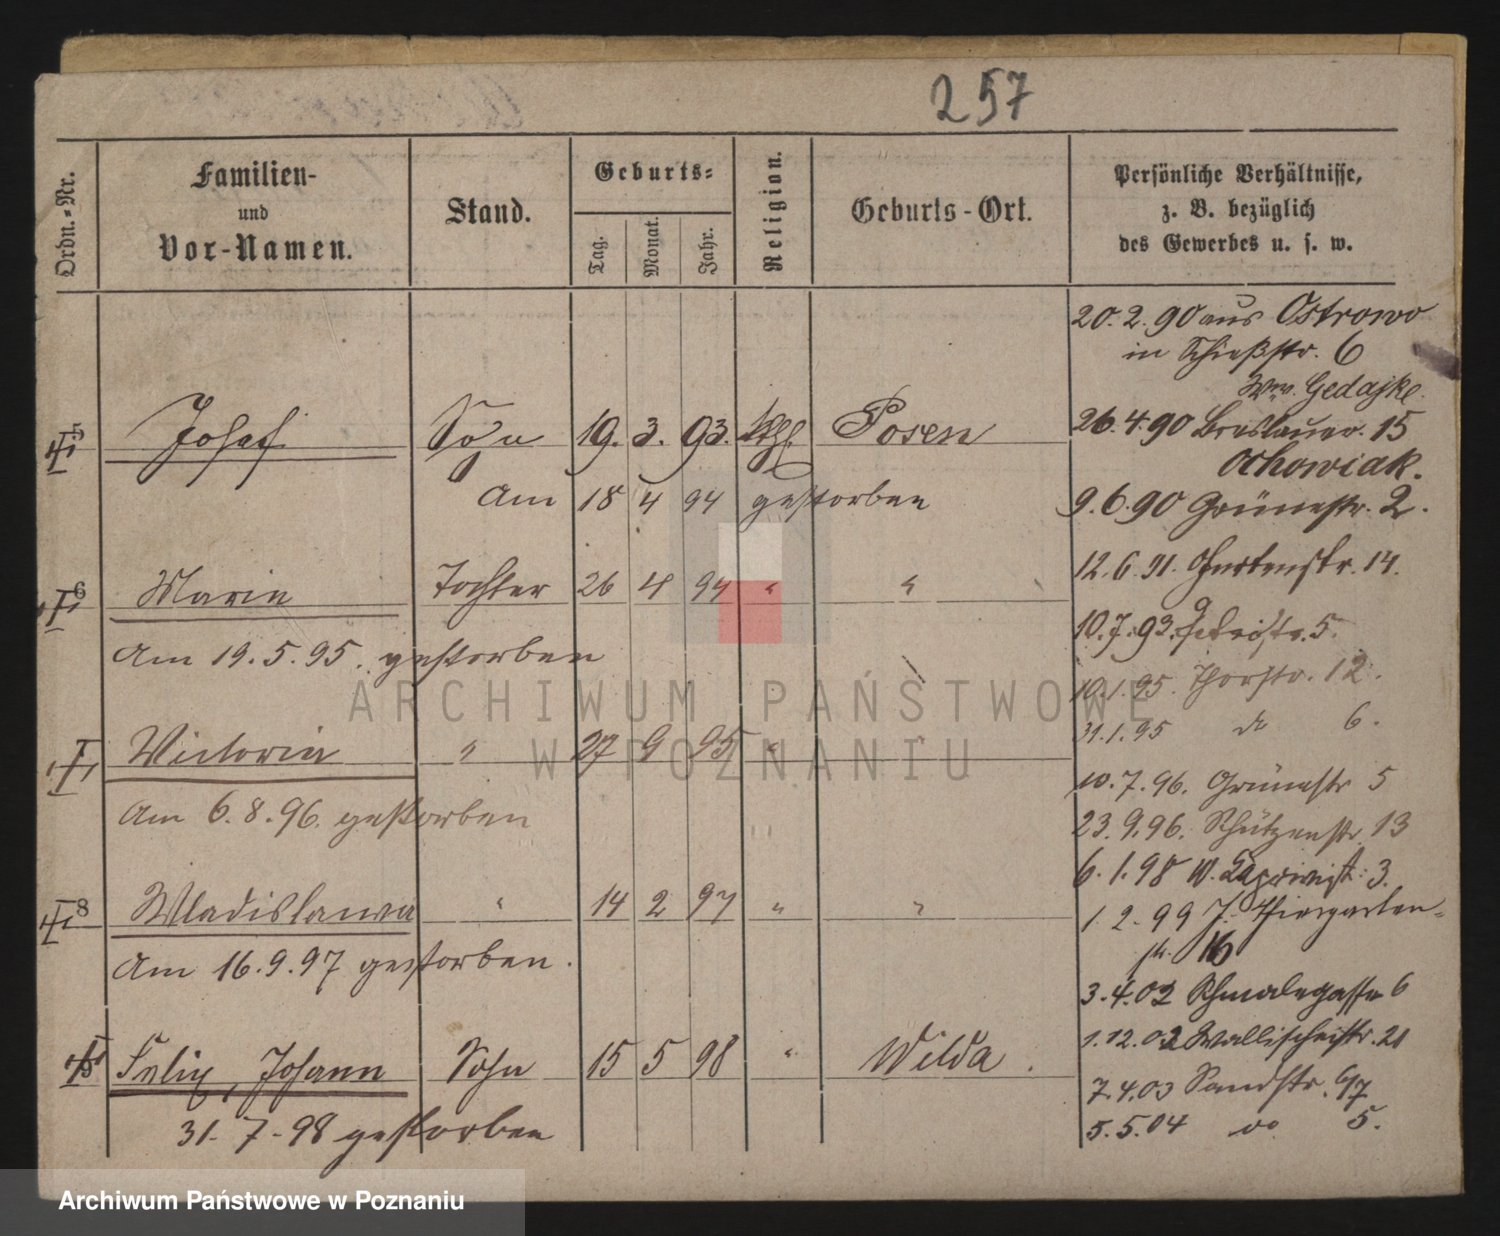 257
Ordn.-Nr.
Familien-
und
Vor-Namen.
Stand.
Geburts-
Tag. Monat. Jahr.
Religion.
Geburts-Ort.
Persönliche Verhältnisse,
z. B. bezüglich
des Gewerbes u. s. w.
5 Josef Sohn 19. 3. 93. kth. Posen
Am 18 4 94 gestorben
6 Marie Tochter 26 4 94 " "
Am 19.5.95. gestorben
Victoria " 27 9 95 "
Am 6.8.96. gestorben
8 Wladislawa " 14 2 97 " "
Am 16.9.97 gestorben.
Felix, Johann Sohn 15 5 98 " Wilda.
31-7-98 gestorben
20.2.90 aus Ostrowo
in Schießstr. 6
Ww. Gedajke.
26.4.90 Breslauer. 15
Ochowiak.
9.6.90 Grünestr. 2.
12.6.91. Gartenstr. 14.
10.7.93. Petristr. 5.
10.1.95. Thorstr. 12.
31.1.95 do 6.
10.7.96. Grünestr 5
23.9.96. Schützenstr. 13
6.1.98 W. Caprivist. 3.
1.2.99 J. Thiergarten-
str. 16
3.4.02 Schmalegasse 6
1.12.02 Wallischeistr. 21
7.4.03 Sandstr.
5.5.04 do 5.
ARCHIWUM PAŃSTWOWE
W POZNANIU
Archiwum Państwowe w Poznaniu